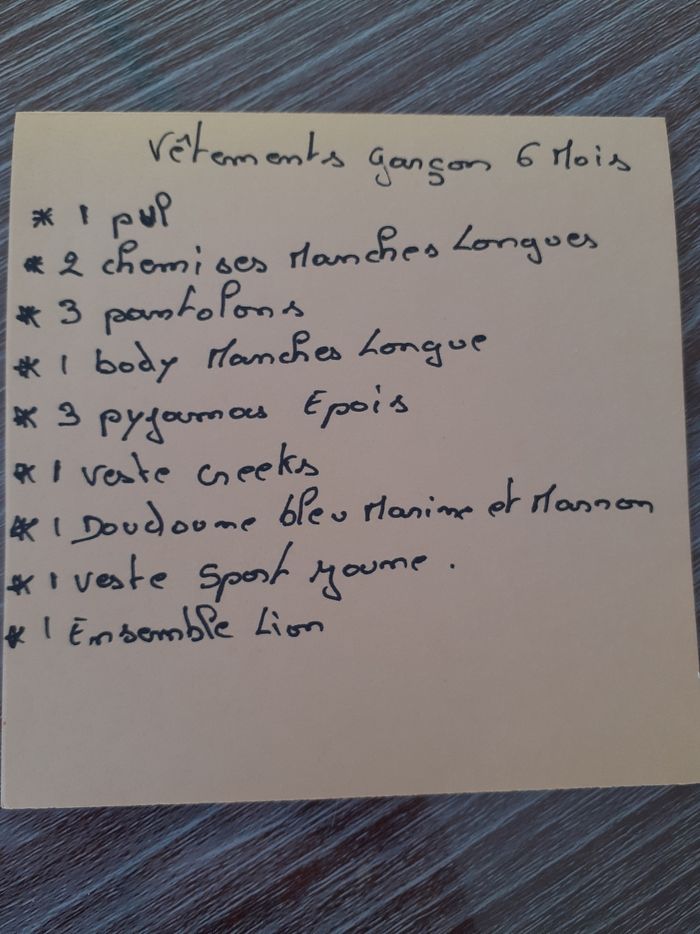 Vêtements garçon 6 Mois
* 1 pull
* 2 chemises Manches Longues
* 3 pantolons
* 1 body Manches Longue
* 3 pyjamas Epois
* 1 veste creeks
* 1 Doudoune bleu Marine et Marron
* 1 veste Sport jaune.
* 1 Ensemble Lion